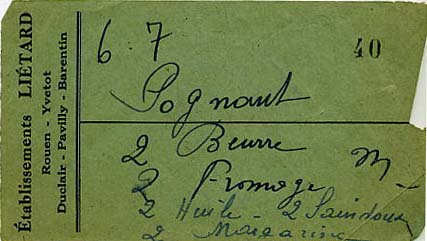 Établissements LIÉTARD
Rouen - Yvetot
Duclair - Pavilly - Barentin
6 7
40
Pognant
2 Beurre M
2 Fromage
2 Huile - 2 Saindoux
2 Margarine